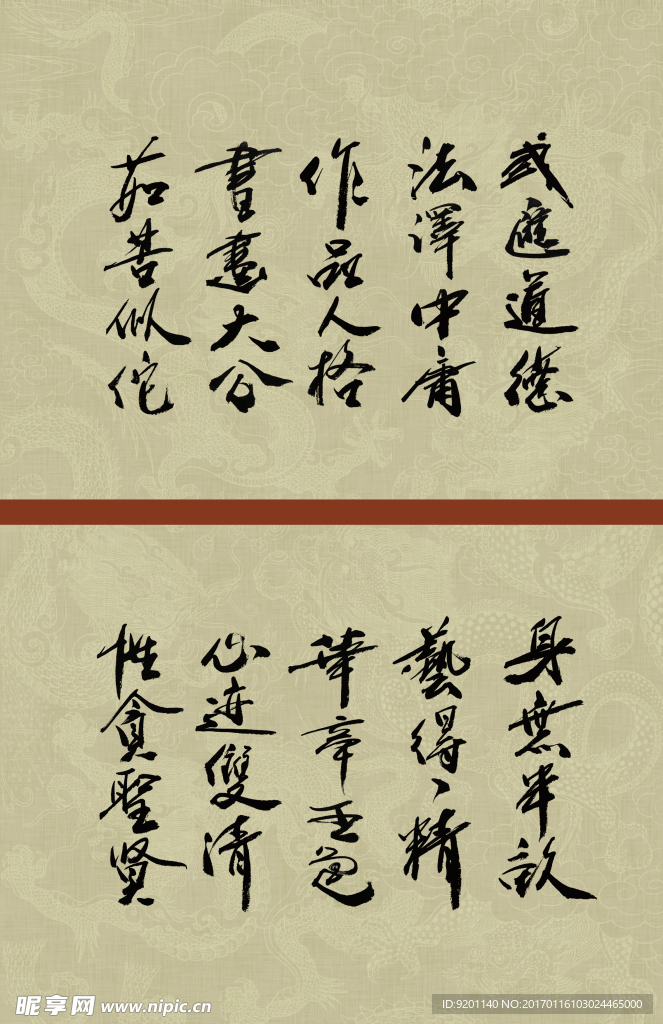 武匯道德
法澤中庸
作品人格
書畫大公
茹苦似佗
身無半畝
藝得、精
華章玉色
心迹雙清
性貪聖賢
昵享网 www.nipic.cn
ID:9201140 NO:20170116103024465000